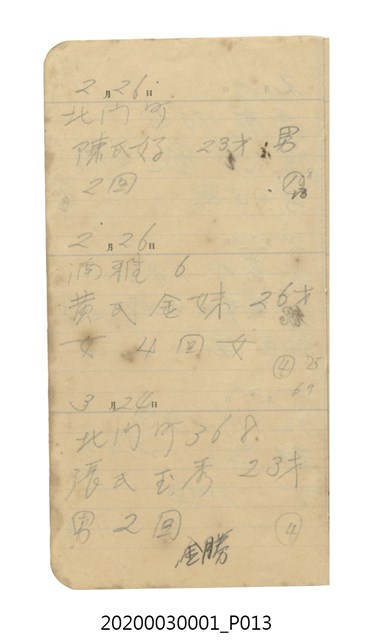 2月26日
北門町
陳氏好 23才 男
2回
2月26日
湳雅 6
黄氏金妹 26才
女 4回女 ④ 25
69
3月24日
北門町368.
張氏玉秀 23才
男2回 ④
金勝
20200030001_P013